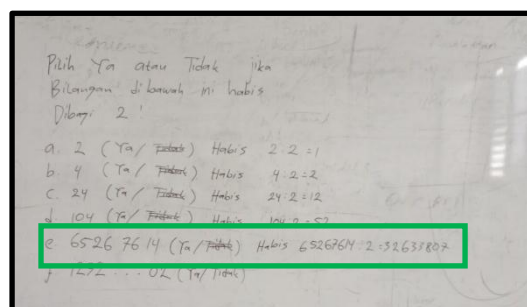 Pilih Ya atau Tidak jika
Bilangan dibawah ini habis
Dibagi 2 !
a. 2 (Ya/ Tidak) Habis 2:2=1
b. 4 (Ya/ Tidak) Habis 4:2=2
c. 24 (Ya/ Tidak) Habis 24:2=12
d. 104 (Ya/ Tidak) Habis 104:2=52
e. 65267614 (Ya/Tidak) Habis 65267614:2=32633807
f. 1232...02 (Ya/Tidak)